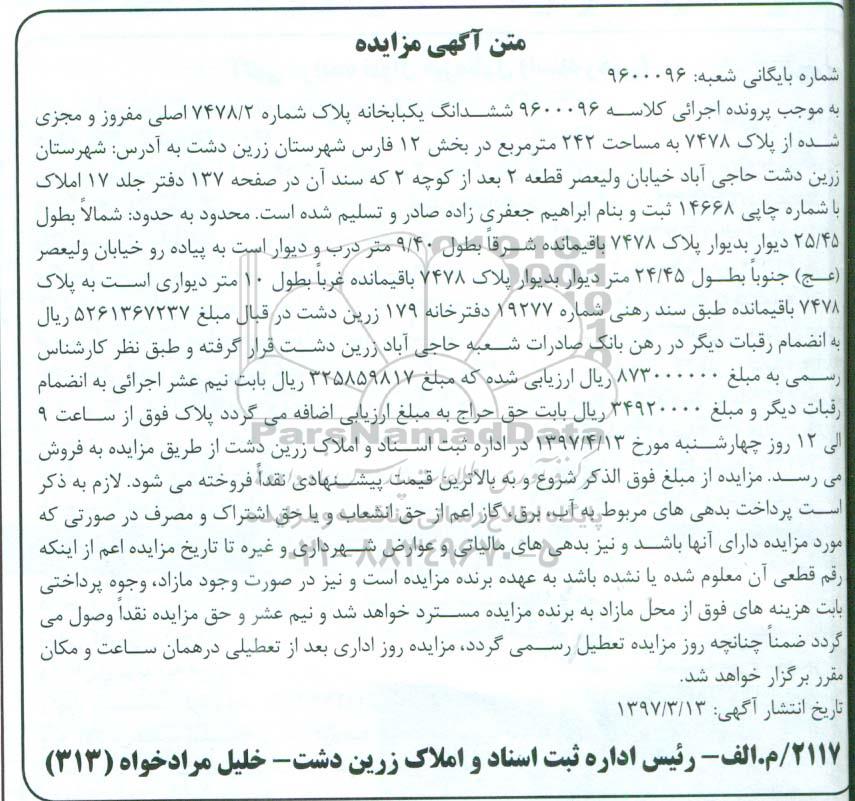 متن آگهی مزایده
شماره بایگانی شعبه: ۹۶۰۰۰۹۶
به موجب پرونده اجرائی کلاسه ۹۶۰۰۰۹۶ ششدانگ یکبابخانه پلاک شماره ۷۴۷۸/۲ اصلی مفروز و مجزی
شده از پلاک ۷۴۷۸ به مساحت ۲۴۲ مترمربع در بخش ۱۲ فارس شهرستان زرین دشت به آدرس: شهرستان
زرین دشت حاجی آباد خیابان ولیعصر قطعه ۲ بعد از کوچه ۲ که سند آن در صفحه ۱۳۷ دفتر جلد ۱۷ املاک
با شماره چاپی ۱۴۶۶۸ ثبت و بنام ابراهیم جعفری زاده صادر و تسلیم شده است. محدود به حدود: شمالاً بطول
۲۵/۴۵ دیوار بدیوار پلاک ۷۴۷۸ باقیمانده شرقاً بطول ۹/۴۰ متر درب و دیوار است به پیاده رو خیابان ولیعصر
(عج) جنوباً بطول ۲۴/۴۵ متر دیوار بدیوار پلاک ۷۴۷۸ باقیمانده غرباً بطول ۱۰ متر دیواری است به پلاک
۷۴۷۸ باقیمانده طبق سند رهنی شماره ۱۹۲۷۷ دفترخانه ۱۷۹ زرین دشت در قبال مبلغ ۵۲۶۱۳۶۷۲۳۷ ریال
به انضمام رقبات دیگر در رهن بانک صادرات شعبه حاجی آباد زرین دشت قرار گرفته و طبق نظر کارشناس
رسمی به مبلغ ۸۷۳۰۰۰۰۰۰ ریال ارزیابی شده که مبلغ ۳۲۵۸۵۹۸۱۷ ریال بابت نیم عشر اجرائی به انضمام
رقبات دیگر و مبلغ ۳۴۹۲۰۰۰۰ ریال بابت حق حراج به مبلغ ارزیابی اضافه می گردد پلاک فوق از ساعت ۹
الی ۱۲ روز چهارشنبه مورخ ۱۳۹۷/۴/۱۳ در اداره ثبت اسناد و املاک زرین دشت از طریق مزایده به فروش
می رسد. مزایده از مبلغ فوق الذکر شروع و به بالاترین قیمت پیشنهادی نقداً فروخته می شود. لازم به ذکر
است پرداخت بدهی های مربوط به آب، برق، گاز اعم از حق انشعاب و یا حق اشتراک و مصرف در صورتی که
مورد مزایده دارای آنها باشد و نیز بدهی های مالیاتی و عوارض شهرداری و غیره تا تاریخ مزایده اعم از اینکه
رقم قطعی آن معلوم شده یا نشده باشد به عهده برنده مزایده است و نیز در صورت وجود مازاد، وجوه پرداختی
بابت هزینه های فوق از محل مازاد به برنده مزایده مسترد خواهد شد و نیم عشر و حق مزایده نقداً وصول می
گردد ضمناً چنانچه روز مزایده تعطیل رسمی گردد، مزایده روز اداری بعد از تعطیلی درهمان ساعت و مکان
مقرر برگزار خواهد شد.
تاریخ انتشار آگهی: ۱۳۹۷/۳/۱۳
۲۱۱۷/م.الف- رئیس اداره ثبت اسناد و املاک زرین دشت- خلیل مرادخواه (۳۱۳)
ParsNamadData
۰۲۱-۸۸۳۴۹۶۷۰-۵